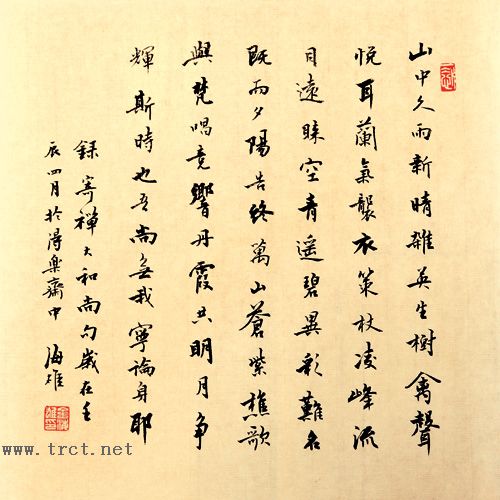 山中久雨新晴雜英生樹禽聲
悦耳蘭氣襲衣策杖凌峰流
目遠睞空青遥碧異彩難名
既而夕陽告終萬山蒼紫樵歌
與梵唱竞響丹霞共明月争
輝斯時也吾尚无我寧論身耶
録寄禪大和尚句歲在壬
辰四月於得樂齋中 海雄
www.trct.net